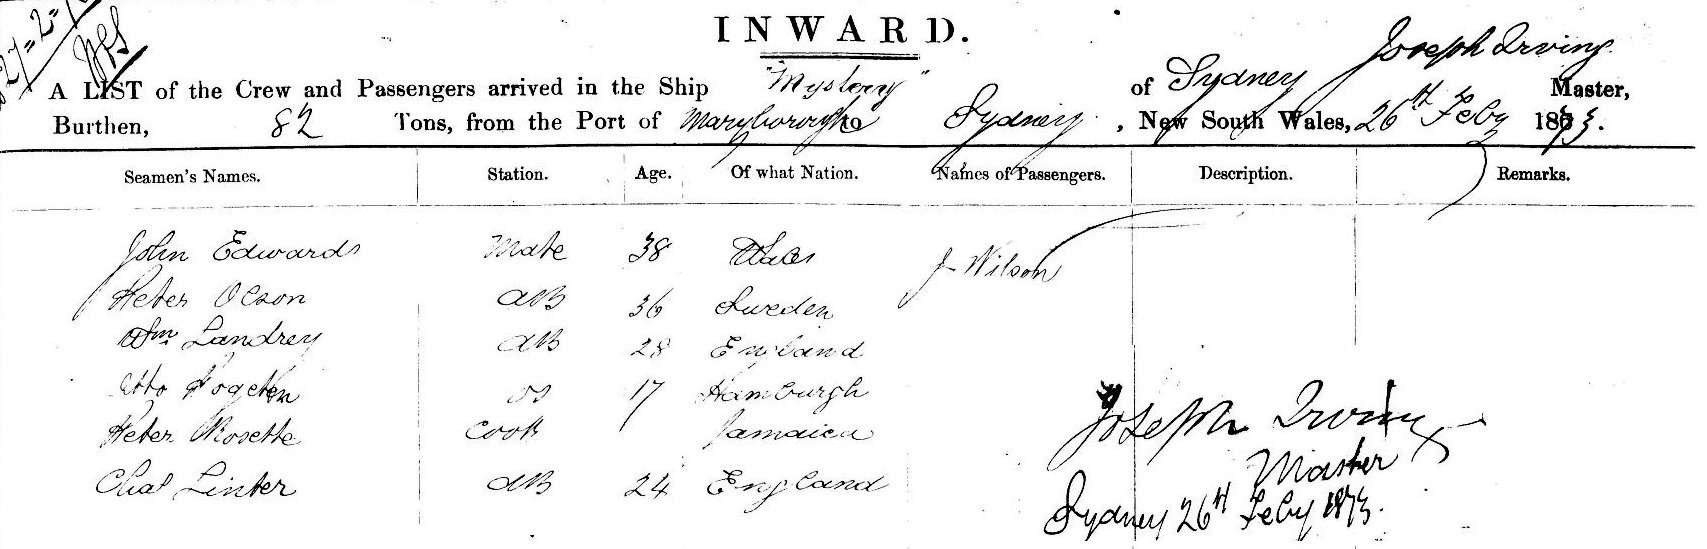 27=2=
INWARD.
A LIST of the Crew and Passengers arrived in the Ship "Mystery" of Sydney Joseph Irving Master,
Burthen, 82 Tons, from the Port of Maryborough to Sydney, New South Wales, 26th Feby 1873.
Seamen's Names. Station. Age. Of what Nation. Names of Passengers. Description. Remarks.
John Edwards Mate 38 Wales J Wilson
Peter Olson AB 36 Sweden
Wm Landrey AB 28 England
Otto OS 17 Hamburgh
Peter Rosette Cook Jamaica
Chas Linter AB 24 England
Joseph Irving
Master
Sydney 26th Feby 1873.